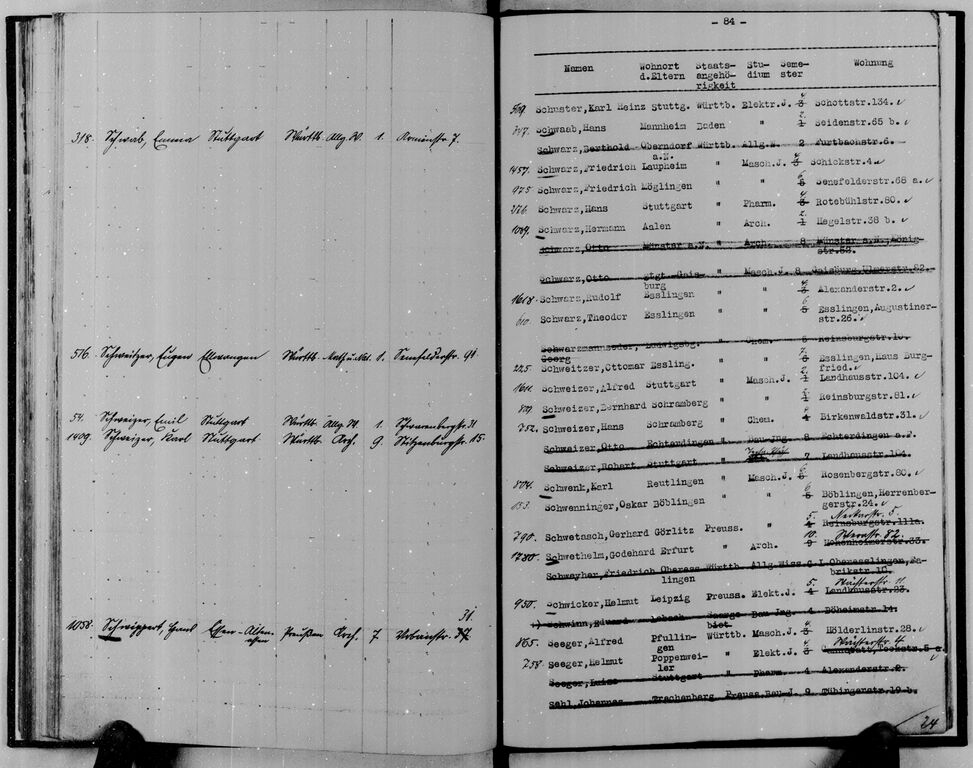 318. Schwab, Emma Stuttgart Württb. Allg.W. 1. Arminstr. 7.
516. Schweitzer, Eugen Ellwangen Württb. Math.u.Nat. 1. Senefelderstr. 91
54. Schweizer, Emil Stuttgart Württ. Allg.W. 1 Schwarenbergstr. 31
1409. Schweizer, Karl Stuttgart Württb. Arch. 9 Stitzenburgstr. 15.
31.
1058. Schwippert, Hans Essen-Alten- Preußen Arch. 7 Urbanstr.
essen
- 84 -
Namen Wohnort d.Eltern Staats-angehö-rigkeit Stu-dium Seme-ster Wohnung
509. Schuster, Karl Heinz Stuttg. Württb. Elektr.J. 4 3 Schottstr.134.
747. Schwaab,Hans Mannheim Baden " 2. 1 Seidenstr.65 b.
Schwarz,Berthold Oberndorf Württb. Allg.W. 2 Furtbachstr.6.
a.N.
1457. Schwarz,Friedrich Laupheim " Masch.J. 4 3 Schickstr.4.
975. Schwarz,Friedrich Möglingen " " 6 5 Senefelderstr.68 a.
276. Schwarz,Hans Stuttgart " Pharm. 4 3 Rotebühlstr.80.
1009. Schwarz,Hermann Aalen " Arch. 2. 1 Hegelstr.38 b.
Schwarz,Otto Münster a.N. " Arch. 8 Münster a.N.,König-
str.52.
Schwarz,Otto Stgt.Gais- " Masch.J. 8 Gaisburg,Ulmerstr.82.
burg
1618. Schwarz,Rudolf Esslingen " " 4 3 Alexanderstr.2.
610. Schwarz,Theodor Esslingen " " 6 5 Esslingen,Augustiner-
str.26.
Schwarzmannseder, Ludwigsbg. " Chem. 8 Reinsburgstr.10.
Georg
225. Schweitzer,Ottomar Essling. " " 7 3 Esslingen,Haus Burg-
fried.
1611. Schweizer,Alfred Stuttgart " Masch.J. 2. 1 Landhausstr.104.
819. Schweizer,Bernhard Schramberg " " 2 1 Reinsburgstr.81.
752. Schweizer,Hans Schramberg " Chem. Birkenwaldstr.31.
Schweizer,Otto Echterdingen " Bau-Jng. 8 Echterdingen a.F.
Schweizer,Robert Stuttgart " 7 Landhausstr.104.
804. Schwenk,Karl Reutlingen " Masch.J. 6 5 Rosenbergstr.80.
133. Schwenninger,Oskar Böblingen " " 6 5 Böblingen,Herrenber-
gerstr.24.
5. Neckarstr. 5.
790. Schwetasch,Gerhard Görlitz Preuss. " 4 Reinsburgstr.111a.
10. Sternstr. 82.
1280. Schwethelm,Godehard Erfurt " Arch. 9 Hohenheimerstr.33.
Schwayher,Friedrich Oberess- Württb. Allg.Wiss. G.T. Oberesslingen,Fa-
lingen brikstr.10.
5. Wächterstr. 11.
950. Schwicker,Helmut Leipzig Preuss. Elekt.J. 4 Landhausstr.23.
Schwinn,Eduard Lebach Saarge- Bau-Jng. 4 Böheimstr.14.
biet
865. Seeger,Alfred Pfullin- Württb. Masch.J. 4 3 Hölderlinstr.28.
gen
Wächterstr. 4.
758. Seeger,Helmut Poppenwei- " Elekt.J. 4 3 Cannstatt,Teckstr.5 a.
ler
Seeger,Luise Stuttgart " Pharm. 4 Alexanderstr.2.
Sehl,Johannes Trachenberg Preuss.Bau-J. 9 Tübingerstr.19 b.
24